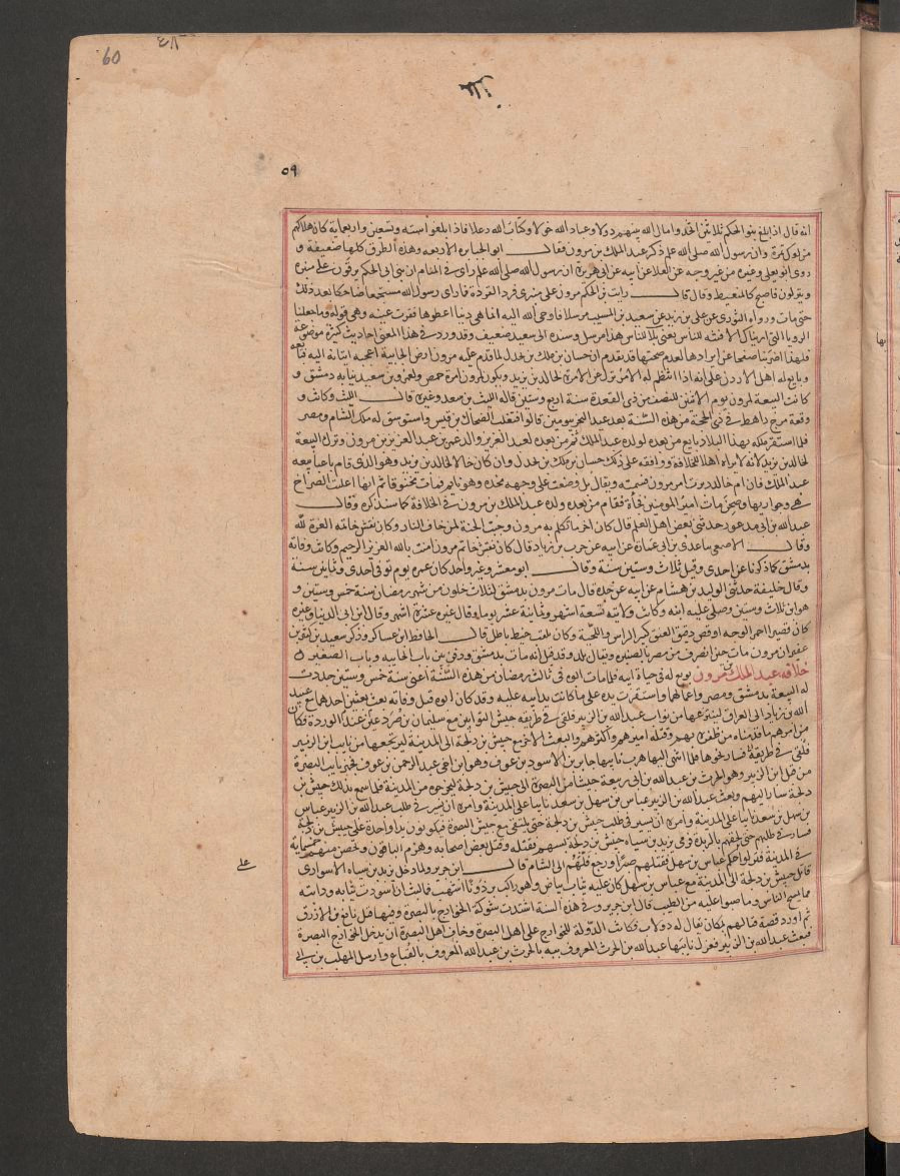 60
٥٩
انه قال اذا بلغ بنوا الحكم ثلاثين اتخذوا مال الله بينهم دولا وعباد الله خولا وكتاب الله دغلا فاذا بلغوا ستة وتسعين واربعماية كان هلاكهم
وان رسول الله صلى الله عليه ذكر عبد الملك بن مرون فقال ابو الجبابرة الاربعه وهذه الطرق كلها ضعيفة و
روى ابو يعلى وغيره من غير وجه عن العلا عن ابيه عن ابي هريرة ان رسول الله صلى الله عليه راى في المنام ان بني الحكم يرقون على منبره
وينزلون فاصبح كالمتغيط وقال رايت بني الحكم ينزون على منبري نزو القردة فما راى رسول الله مستجمعا ضاحكا بعد ذلك
حتى مات ورواه الثوري عن علي بن زيد عن سعيد بن المسيب مرسلا فاوحى الله اليه انما هي دنيا اعطوها فقرت عينه وهي قوله وما جعلنا
الرويا التي اريناك الا فتنة للناس يعني بلا للناس هذا مرسل وسنده الى سعيد ضعيف وقد ورد في هذا المعنى احاديث كثيرة موضوعة
فلهذا اضربنا صفحا عن ايرادها لعدم صحتها قد تقدم ان حسان بن ملك بن بحدل لما قدم عليه مرون ارض الجابية اعجبه اتيانه اليه فبايعه
وبايع له اهل الاردن على انه اذا انتظم له الامر نزل عن الامرة لخالد بن يزيد ويكون لمرون امرة حمص ولعمرو بن سعيد نيابه دمشق و
كانت البيعة لمرون يوم الاثنين للنصف من ذي القعدة سنة اربع وستين قاله الليث بن سعد وغيره قال الليث وكانت و
وقعة مرج راهط في ذي الحجة من هذه السنة بعد عيد النحر بيومين قالوا فغلب الضحاك بن قيس واستوسق له ملك الشام ومصر
فلما استقر ملكه بهذا البلاد بايع من بعده لولده عبد الملك ثم من بعده لعبد العزيز والد عمر بن عبد العزيز بن مرون وترك البيعة
لخالد بن يزيد لانه لا يراه اهلا للخلافة ووافقه على ذلك حسان بن ملك بن بحدل وان كان خالا لخالد بن يزيد وهو الذي قام باعبا بيعه
عبد الملك فان ام خالد دبرت امر مرون فسمته ويقال بل وضعت على وجهه مخده وهو نايم فمات مخنوقا ثم انها اعلنت الصراخ
هي وجواريها وصحن مات امير المومنين فجأة فقام من بعده ولده عبد الملك بن مرون في الخلافة كما سنذكره وقال
عبد الله بن ابي مدعور حدثني بعض اهل العلم قال كان اخر ما تكلم به مرون وجبت الجنة لمن خاف النار وكان نقش خاتمه العزة لله
وقال الاصمعي عن ابيه عن حرب بن زياد قال كان نقش خاتم مرون امنت بالله العزيز الرحيم وكانت وفاته
بدمشق كما ذكرنا عن احدى وقيل ثلاث وستين سنة وقال ابو معشر وغير واحد كان عمره يوم توفي احدى وثمانين سنة
وقال خليفة حدثني الوليد بن هشام عن ابيه عن جده قال مات مرون بدمشق لثلاث خلون من شهر رمضان سنة خمس وستين و
هو ابن ثلاث وستين وصلى عليه ابنه وكانت ولايته تسعة اشهر وثمانية عشر يوما وقال غيره عشرة اشهر وقال ابن ابي الدنيا وغيره
كان قصيرا احمر الوجه اوقص دقيق العنق كبير الراس واللحية وكان يلقب خيط باطل قال الحافظ ابن عساكر وذكر سعيد بن كثير بن
عفير ان مرون مات حين انصرف من مصر بالصنبره ويقال بلد وقد قيل انه مات بدمشق ودفن بين باب الجابيه وباب الصغير
خلافه عبد الملك بن مرون بويع له في حياة ابيه فلما مات ابوه في ثالث رمضان من هذه السنة اعني سنة خمس وستين جددت
له البيعة بدمشق ومصر واعمالها واستقرت يده على ما كانت يد ابيه عليه وقد كان ابوه قبل وفاته بعث بعثين احدهما مع عبيد
الله بن زياد الى العراق لينتزعها من نواب عبد الله بن الزبير فلقي في طريقه جيش التوابين مع سليمان بن صرد على عند الوردة فكان
من امرهم ما قدمناه من ظفره بهم وقتله اميرهم واكثرهم والبعث الاخر مع حبيش بن دلجة الى المدينة ليرتجعها من نايب ابن الزبير
في طريقه فسار نحوها فلما انتهى اليها هرب نايبها جابر بن الاسود بن عوف وهو ابن اخي عبد الرحمن بن عوف فجهز نايب البصرة
من قبل ابن الزبير وهو الحرث بن عبد الله بن ابي ربيعة جيشا من البصرة الى حبيش بن دلجة ليخرجوه من المدينة فلما سمع بذلك حبيش بن
دلجة سار اليهم وبعث عبد الله بن الزبير عباس بن سهل بن سعد نايبا على المدينة وامره ان يسير في طلب عبد الله بن الزبير عباس
بن سهل بن سعد نايبا على المدينة وامره ان يسير في طلب حبيش بن دلجة حتى يلتقي مع جيش البصرة فيكونون يدا واحدة على حبيش بن دلجة
فسار في طلبهم حتى لحقهم بالربذة فرمى يزيد بن سياه حبيش بن دلجة بسهم فقتله وقتل بعض اصحابه وهزم الباقون وتحصن منهم خمسماية
في المدينة فنزلوا على حكم عباس بن سهل فقتلهم صبرا ورجع فلهم الى الشام قال ابن جرير ولما دخل يزيد بن سياه الاسواري
قاتل حبيش بن دلجة الى المدينة مع عباس بن سهل كان عليه ثياب بياض وهو راكب برذونا اشهب فما لبث ان اسودت ثيابه ودابته
مما يمسح الناس وما صبوا عليه من الطيب قال ابن جرير وفي هذه السنة اشتدت شوكة الخوارج بالبصرة وفيها قتل نافع بن الازرق
ثم اورد قصة قتالهم بمكان يقال له دولاب فكانت الدولة للخوارج على اهل البصرة وخاف اهل البصرة ان يدخل الخوارج البصرة
فبعث عبد الله بن الزبير فعزل نايبها عبد الله بن الحرث المعروف ببه بالحرث بن عبد الله المعروف بالقباع وارسل المهلب بن ابي